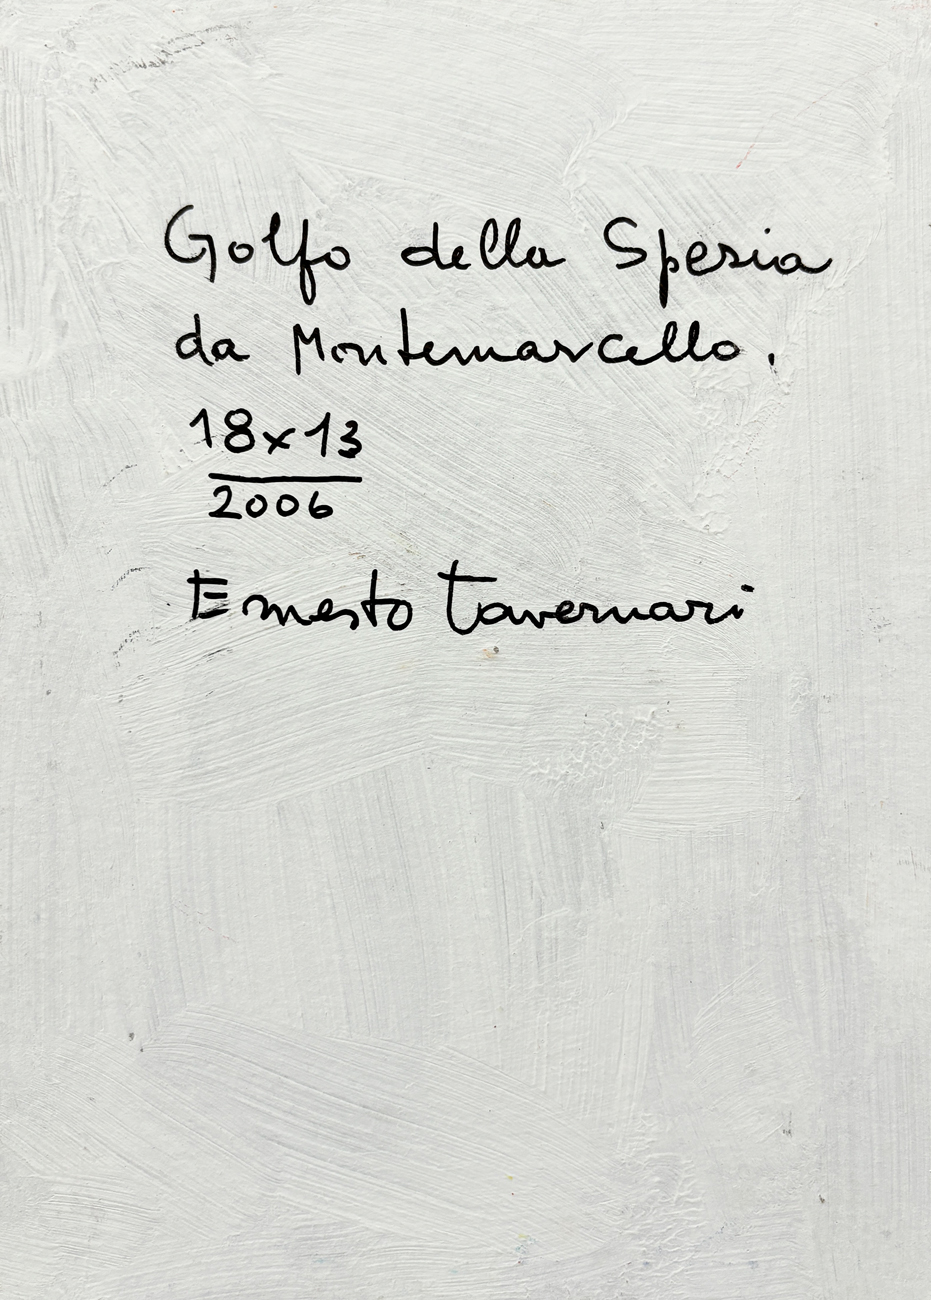 Golfo della Spezia
da Montemarcello.
18x13
2006
Ernesto Tavernari